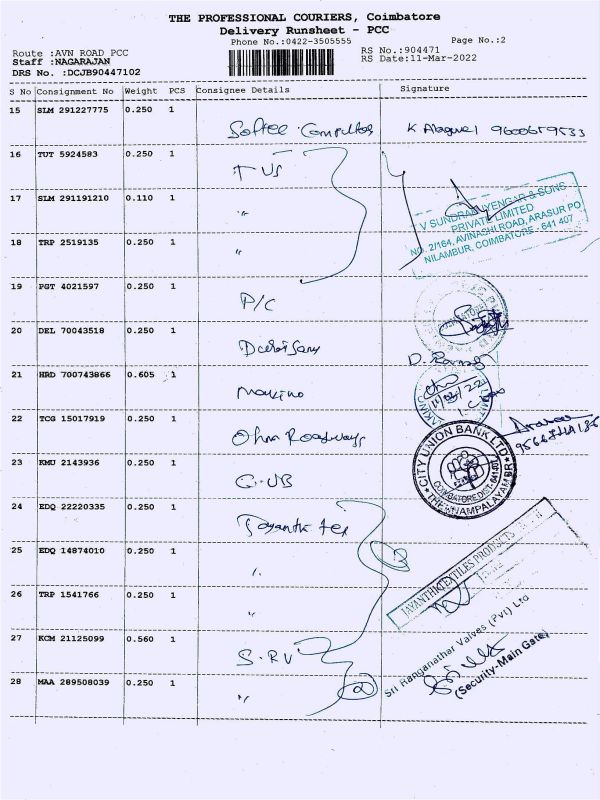 THE PROFESSIONAL COURIERS, Coimbatore
Delivery Runsheet - PCC
Phone No.:0422-3505555
Page No.:2
Route :AVN ROAD PCC
RS No.:904471
Staff :NAGARAJAN
RS Date:11-Mar-2022
DRS No. :DCJB90447102
S No Consignment No Weight PCS Consignee Details Signature
15 SLM 291227775 0.250 1 Softee Computers K Alaguvel 9600659533
16 TUT 5924583 0.250 1 TVS
17 SLM 291191210 0.110 1 "
V SUNDRAM IYENGAR & SONS
PRIVATE LIMITED
NO. 2/164, AVINACHI ROAD, ARASUR PO
NILAMBUR, COIMBATORE - 641 407
18 TRP 2519135 0.250 1 "
19 PGT 4021597 0.250 1 P/C
20 DEL 70043518 0.250 1
21 HRD 700743866 0.605 1 Makino
22 TCG 15017919 0.250 1 Ohm Roadways
23 KMU 2143936 0.250 1 CUB
CITY UNION BANK LTD
THENNAMPALAYAM BR
24 EDQ 22220335 0.250 1 Jayanthi Tex
25 EDQ 14874010 0.250 1 "
JAYANTHI TEXTILES PRODUCTS
26 TRP 1541766 0.250 1 "
27 KCM 21125099 0.560 1 S.RV
Sri Ranganathar Valves (Pvt) Ltd
(Security-Main Gate)
28 MAA 289508039 0.250 1 " 2